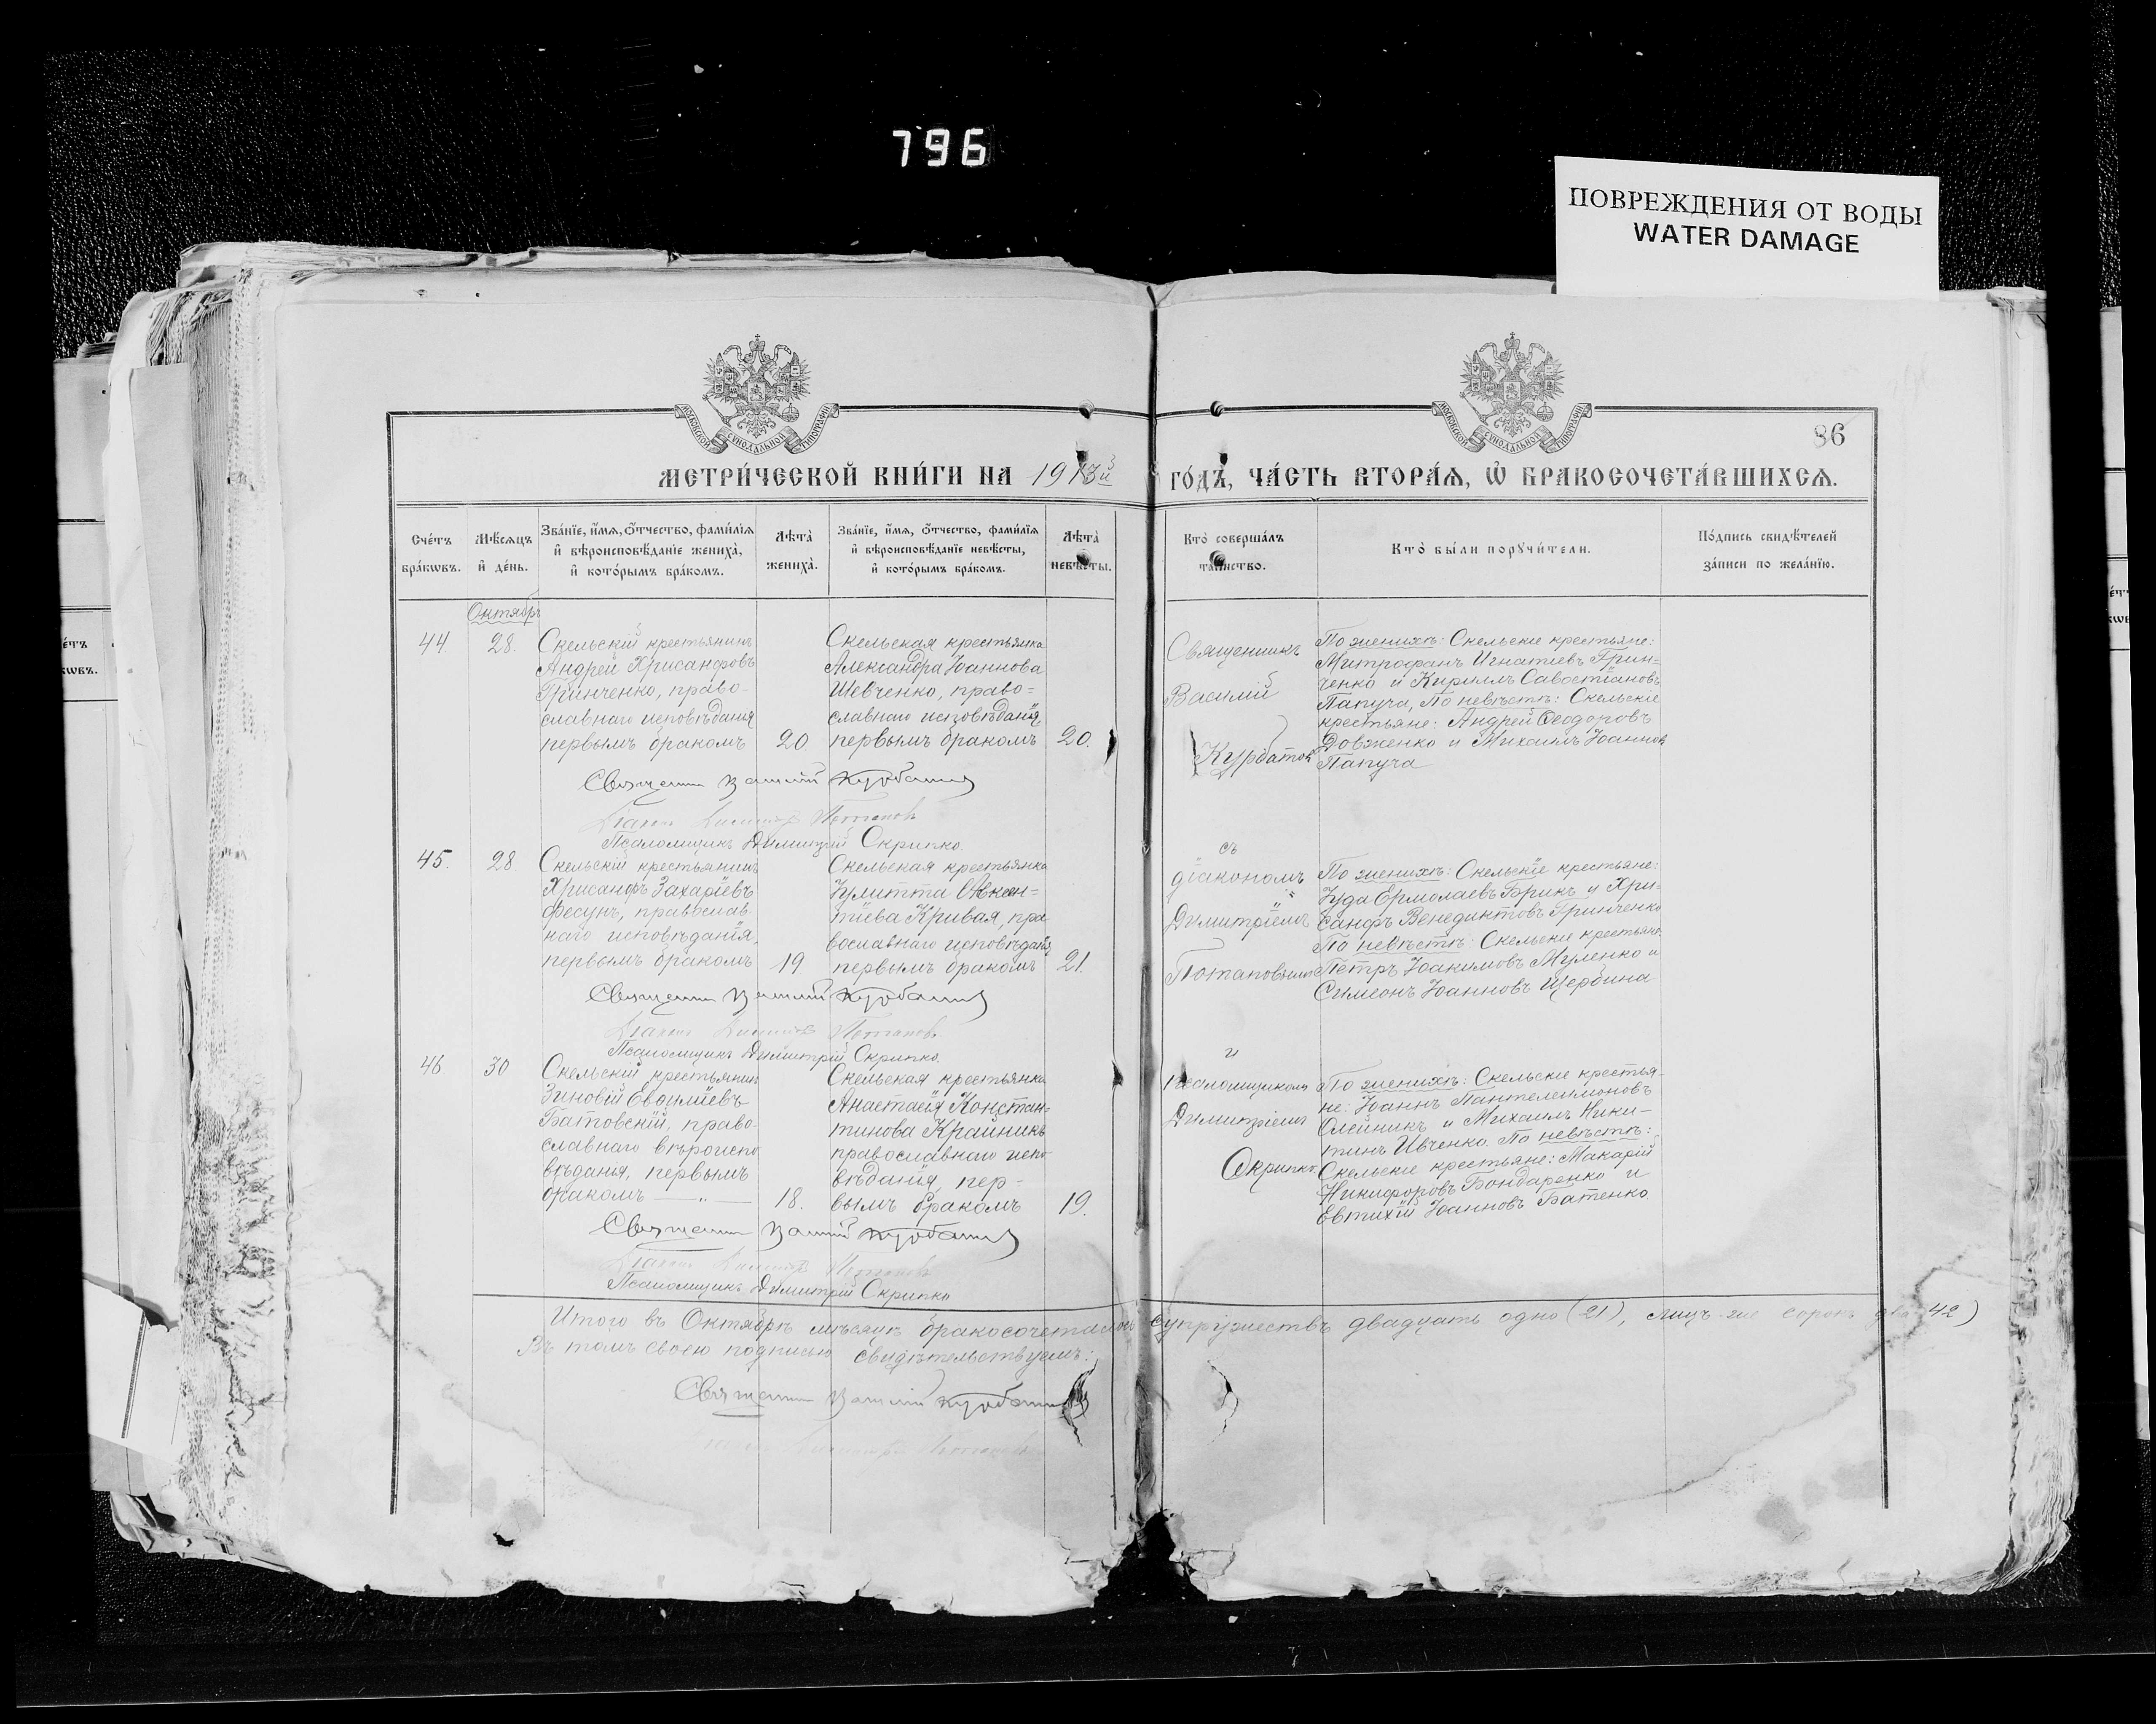 796
ПОВРЕЖДЕНИЯ ОТ ВОДЫ
WATER DAMAGE
МОСКОВСКОЙ СѴНОДАЛЬНОЙ ТИПОГРАФІИ
МОСКОВСКОЙ СѴНОДАЛЬНОЙ ТИПОГРАФІИ
86
МЕТРИ́ЧЕСКОЙ КНИ́ГИ НА 1913й ГО́ДЪ, ЧА́СТЬ ВТОРА́Ѧ, Ѡ҆ БРАКОСОЧЕТА́ВШИХСѦ.
Сче́тъ
бра́кѡвъ.
Мѣ́сѧцъ
и҆ де́нь.
Зва́нїе, и҆́мѧ, ѻ҆́тчество, фами́лїѧ
и҆ вѣроисповѣ́данїе жениха̀,
и҆ кото́рымъ бра́комъ.
Лѣ́та̀
жениха̀.
Зва́нїе, и҆́мѧ, ѻ҆́тчество, фами́лїѧ
и҆ вѣроисповѣ́данїе невѣ́сты,
и҆ кото́рымъ бра́комъ.
Лѣ́та̀
невѣ́сты.
Кто̀ соверша́лъ
та́инство.
Кто̀ бы́ли порꙋчи́тели.
По́дпись свидѣ́телей
за́писи по жела́нїю.
Октябрь
44
28.
Скельскій крестьянинъ
Андрей Хрисанфовъ
Гринченко, право-
славнаго исповѣданія
первымъ бракомъ
20
Скельская крестьянка
Александра Іоаннова
Шевченко, право-
славнаго исповѣданія,
первымъ бракомъ
20.
Священникъ
Василій
Курбатовъ
По женихѣ: Скельскіе крестьяне:
Митрофанъ Игнатіевъ Грин-
ченко и Кириллъ Савостіановъ
Папуча, По невѣстѣ: Скельскіе
крестьяне: Андрей Ѳеодоровъ
Довженко и Михаилъ Іоанновъ
Папуча
Священн Василій Курбатовъ
Діаконъ Димитрій Потаповъ
Псаломщикъ Димитрій Скрипко.
45.
28
Скельскій крестьянинъ
Хрисанфъ Захаріевъ
Фесунъ, православ-
наго исповѣданія,
первымъ бракомъ
19
Скельская крестьянка
Іулитта Авксен-
тіева Кривая, пра-
вославнаго исповѣданія
первымъ бракомъ
21.
съ
діакономъ
Димитріемъ
Потаповымъ
По женихѣ: Скельскіе крестьяне:
Іуда Ермолаевъ Брикъ и Хри-
санфъ Венедиктовъ Гринченко
По невѣстѣ: Скельскіе крестьяне:
Петръ Іоакимовъ Муленко и
Симеонъ Іоанновъ Щербина
Священн Василій Курбатовъ
Діаконъ Димитрій Потаповъ.
Псаломщикъ Димитрій Скрипко.
46
30
Скельскій крестьянинъ
Зиновій Евѳиміевъ
Батовскій, право-
славнаго вѣроиспо
вѣданія, первымъ
бракомъ — „ —
18.
Скельская крестьянка
Анастасія Констан-
тинова Крайникъ
православнаго испо-
вѣданія, пер-
вымъ бракомъ
19.
и
псаломщикомъ
Димитріемъ
Скрипко.
По женихѣ: Скельскіе крестья-
не: Іоаннъ Пантелеимоновъ
Олейникъ и Михаилъ Ники-
тинъ Ивченко. По невѣстѣ:
Скельскіе крестьяне: Макарій
Никифоровъ Бондаренко и
Евтихій Іоанновъ Батенко.
Священн Василій Курбатовъ
Діаконъ Димитрій Потаповъ
Псаломщикъ Димитрій Скрипко
Итого въ Октябрѣ мѣсяцѣ бракосочеталось супружествъ двадцать одно (21), лицъ-же сорокъ два (42)
Въ томъ своею подписью свидѣтельствуемъ:
Священн Василій Курбатовъ
Діаконъ Димитрій Потаповъ